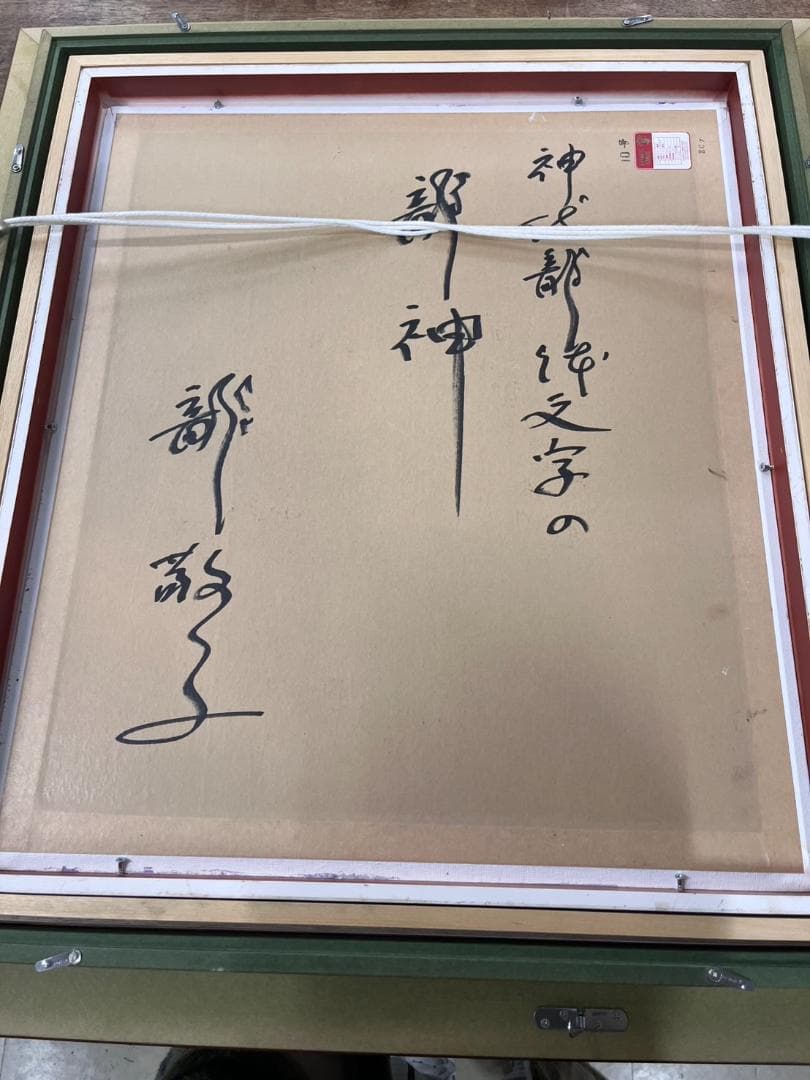 神代龍体文字の
龍神
龍敬子